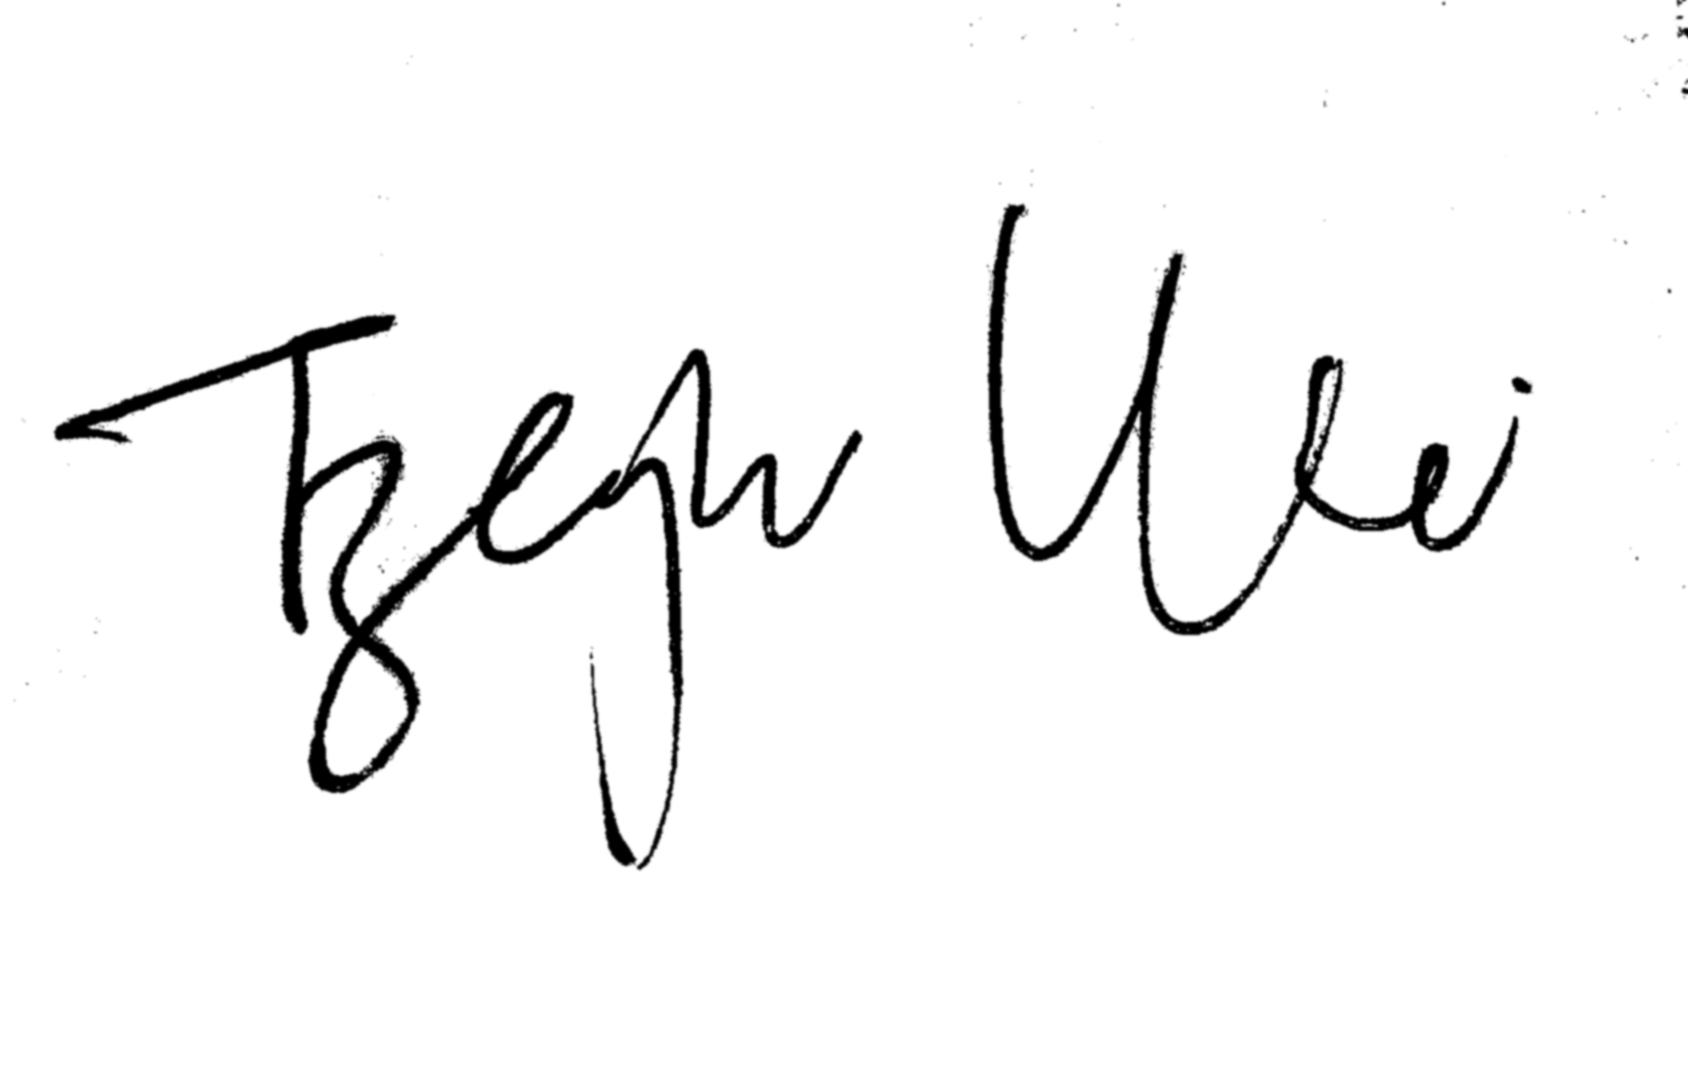 Tzeyu Wei